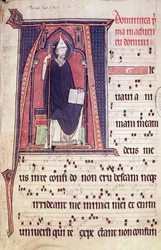 Dominica p
ma in aduen
tu domini
te
leuaui a ni
mam meam
deus me
us in te confi do non eru bescam neq
irrideant me inimici mei et enim
uniuersi qui te expe ctant non confun